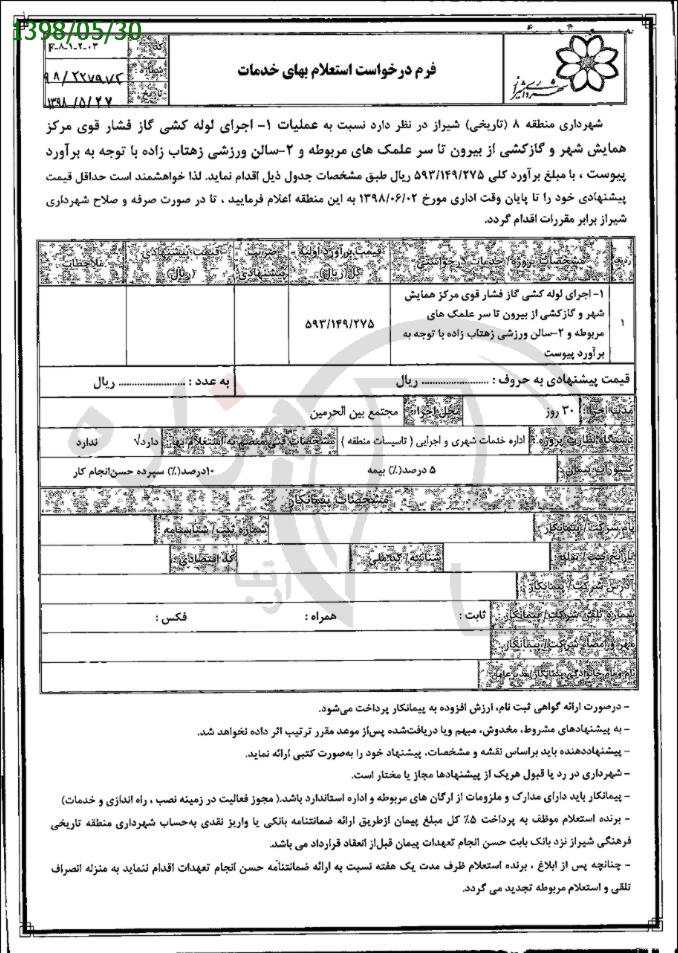 1398/05/30
کد: F-۸-۱-۲-۰۳
شماره: ۹۸/۲۲۷۹۷۲
تاریخ: ۱۳۹۸/۵/۲۷
فرم درخواست استعلام بهای خدمات
شهرداری شیراز
شهرداری منطقه ۸ (تاریخی) شیراز در نظر دارد نسبت به عملیات ۱- اجرای لوله کشی گاز فشار قوی مرکز
همایش شهر و گازکشی از بیرون تا سر علمک های مربوطه و ۲-سالن ورزشی زهتاب زاده با توجه به برآورد
پیوست ، با مبلغ برآورد کلی ۵۹۳/۱۴۹/۲۷۵ ریال طبق مشخصات جدول ذیل اقدام نماید. لذا خواهشمند است حداقل قیمت
پیشنهادی خود را تا پایان وقت اداری مورخ ۱۳۹۸/۰۶/۰۲ به این منطقه اعلام فرمایید ، تا در صورت صرفه و صلاح شهرداری
شیراز برابر مقررات اقدام گردد.
ردیف مشخصات پروژه / خدمات درخواستی قیمت برآورد اولیه ضریب قیمت پیشنهادی ملاحظات
کل (ریال) پیشنهادی (ریال)
۱- اجرای لوله کشی گاز فشار قوی مرکز همایش
شهر و گازکشی از بیرون تا سر علمک های
۱ مربوطه و ۲-سالن ورزشی زهتاب زاده با توجه به ۵۹۳/۱۴۹/۲۷۵
برآورد پیوست
قیمت پیشنهادی به حروف : ........................ ریال به عدد : ........................ ریال
مدت اجرا: ۳۰ روز محل اجرا: مجتمع بین الحرمین
دستگاه نظارت پروژه: اداره خدمات شهری و اجرایی ( تاسیسات منطقه ) مشخصات فنی منضم به استعلام بها: دارد√ ندارد
کسورات پیمان: ۵ درصد(٪) بیمه ۱۰درصد(٪) سپرده حسن‌انجام کار
مشخصات پیمانکار
نام شرکت / پیمانکار: شماره ثبت / شناسنامه :
تاریخ ثبت / تولد: شناسه / کد ملی: کد اقتصادی:
آدرس شرکت / پیمانکار:
شماره تلفن شرکت/ پیمانکار: ثابت : همراه : فکس :
مهر و امضاء شرکت/ پیمانکار:
نام و نام خانوادگی پیمانکار/مدیرعامل:
- درصورت ارائه گواهی ثبت نام، ارزش افزوده به پیمانکار پرداخت می‌شود.
- به پیشنهادهای مشروط، مخدوش، مبهم ویا دریافت‌شده پس‌از موعد مقرر ترتیب اثر داده نخواهد شد.
- پیشنهاددهنده باید براساس نقشه و مشخصات، پیشنهاد خود را به‌صورت کتبی ارائه نماید.
- شهرداری در رد یا قبول هریک از پیشنهادها مجاز یا مختار است.
- پیمانکار باید دارای مدارک و ملزومات از ارگان های مربوطه و اداره استاندارد باشد.( مجوز فعالیت در زمینه نصب ، راه اندازی و خدمات)
- برنده استعلام موظف به پرداخت ۵٪ کل مبلغ پیمان ازطریق ارائه ضمانتنامه بانکی یا واریز نقدی به‌حساب شهرداری منطقه تاریخی
فرهنگی شیراز نزد بانک بابت حسن انجام تعهدات پیمان قبل‌از انعقاد قرارداد می باشد.
- چنانچه پس از ابلاغ ، برنده استعلام ظرف مدت یک هفته نسبت به ارائه ضمانتنامه حسن انجام تعهدات اقدام ننماید به منزله انصراف
تلقی و استعلام مربوطه تجدید می گردد.